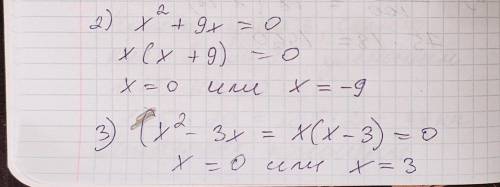 2) x² + 9x = 0
x(x + 9) = 0
x = 0 или x = -9
3) (x² - 3x = x(x - 3) = 0
x = 0 или x = 3